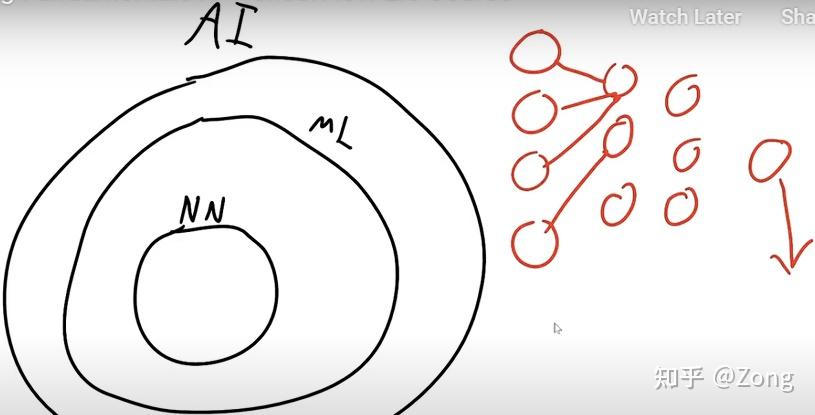 Watch Later
Sha
AI
ML
NN
知乎 @Zong